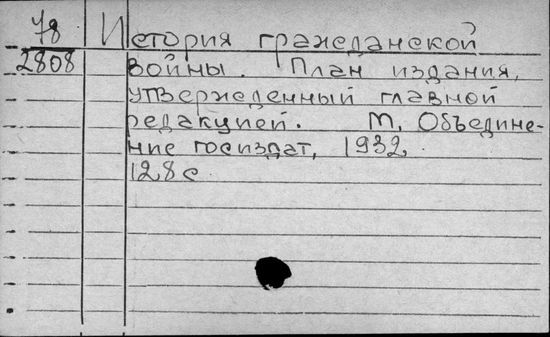 78
2808
История гражданской
войны. План издания,
утвержденный главной
редакцией. М, Объедине-
ние госиздат, 1932.
128 с